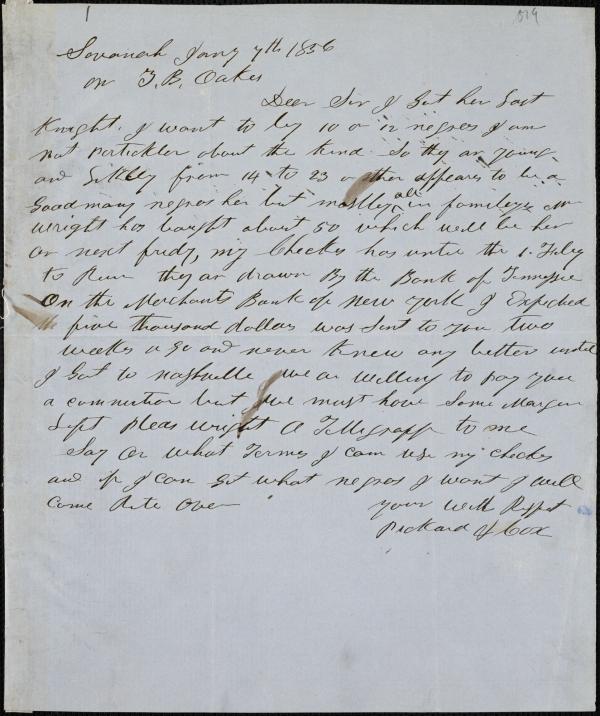 1
514
Savanah Jany 7th 1856
mr Z. B. Oakes
Dear Sir I Got her Last
Knight. I want to by 10 or 12 negros I am
not Portickler about the Kind So they ar young
and Likely from 14 to 23 ther appears to be a
Good many negros her but mostley all in famileys Mr
Wright has baught about 50 which will be her
on next friday, my Checks has until the 1. Feby
to Run they ar drawn By the Bank of Tennessee
On the Merchants Bank of new york I Expected
the five thousand dollars was Sent to you two
weeks a go and never Knew any better until
I Got to nashville we ar willing to pay you
a commition but we must have Some Margin
Left pleas wright a Tellegraff to me
Say on what Termes I can use my checks
and if I can Get what negros I want I will
Come Rite Over
your With Respt
Pickard & Cox